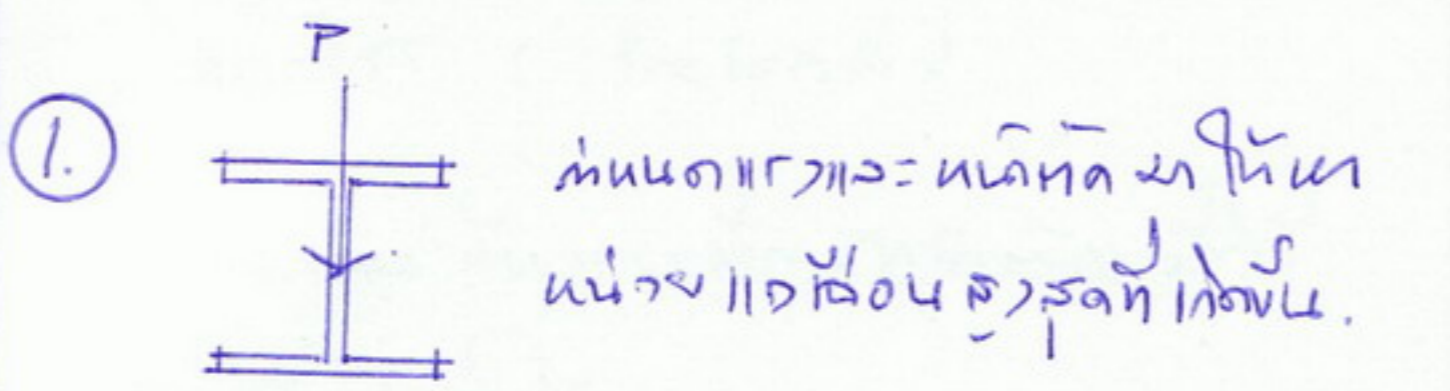 P
1.
กำหนดแรงและหน้าตัดมาให้หา
หน่วยแรงเฉือนสูงสุดที่เกิดขึ้น.